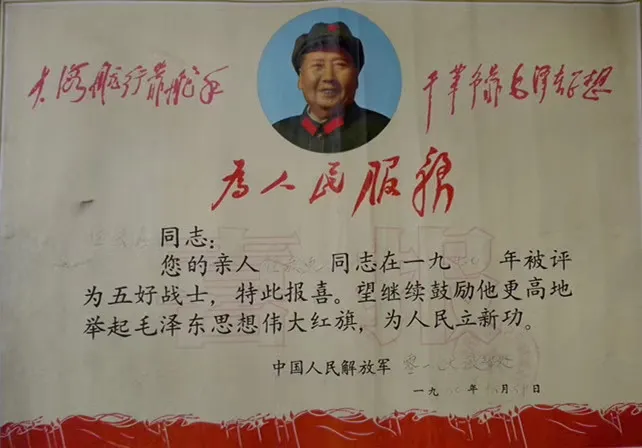 大海航行靠舵手
干革命靠毛泽东思想
为人民服务
喜报
同志：
您的亲人 同志在一九 年被评
为五好战士，特此报喜。望继续鼓励他更高地
举起毛泽东思想伟大红旗，为人民立新功。
中国人民解放军
一九 年 月 日